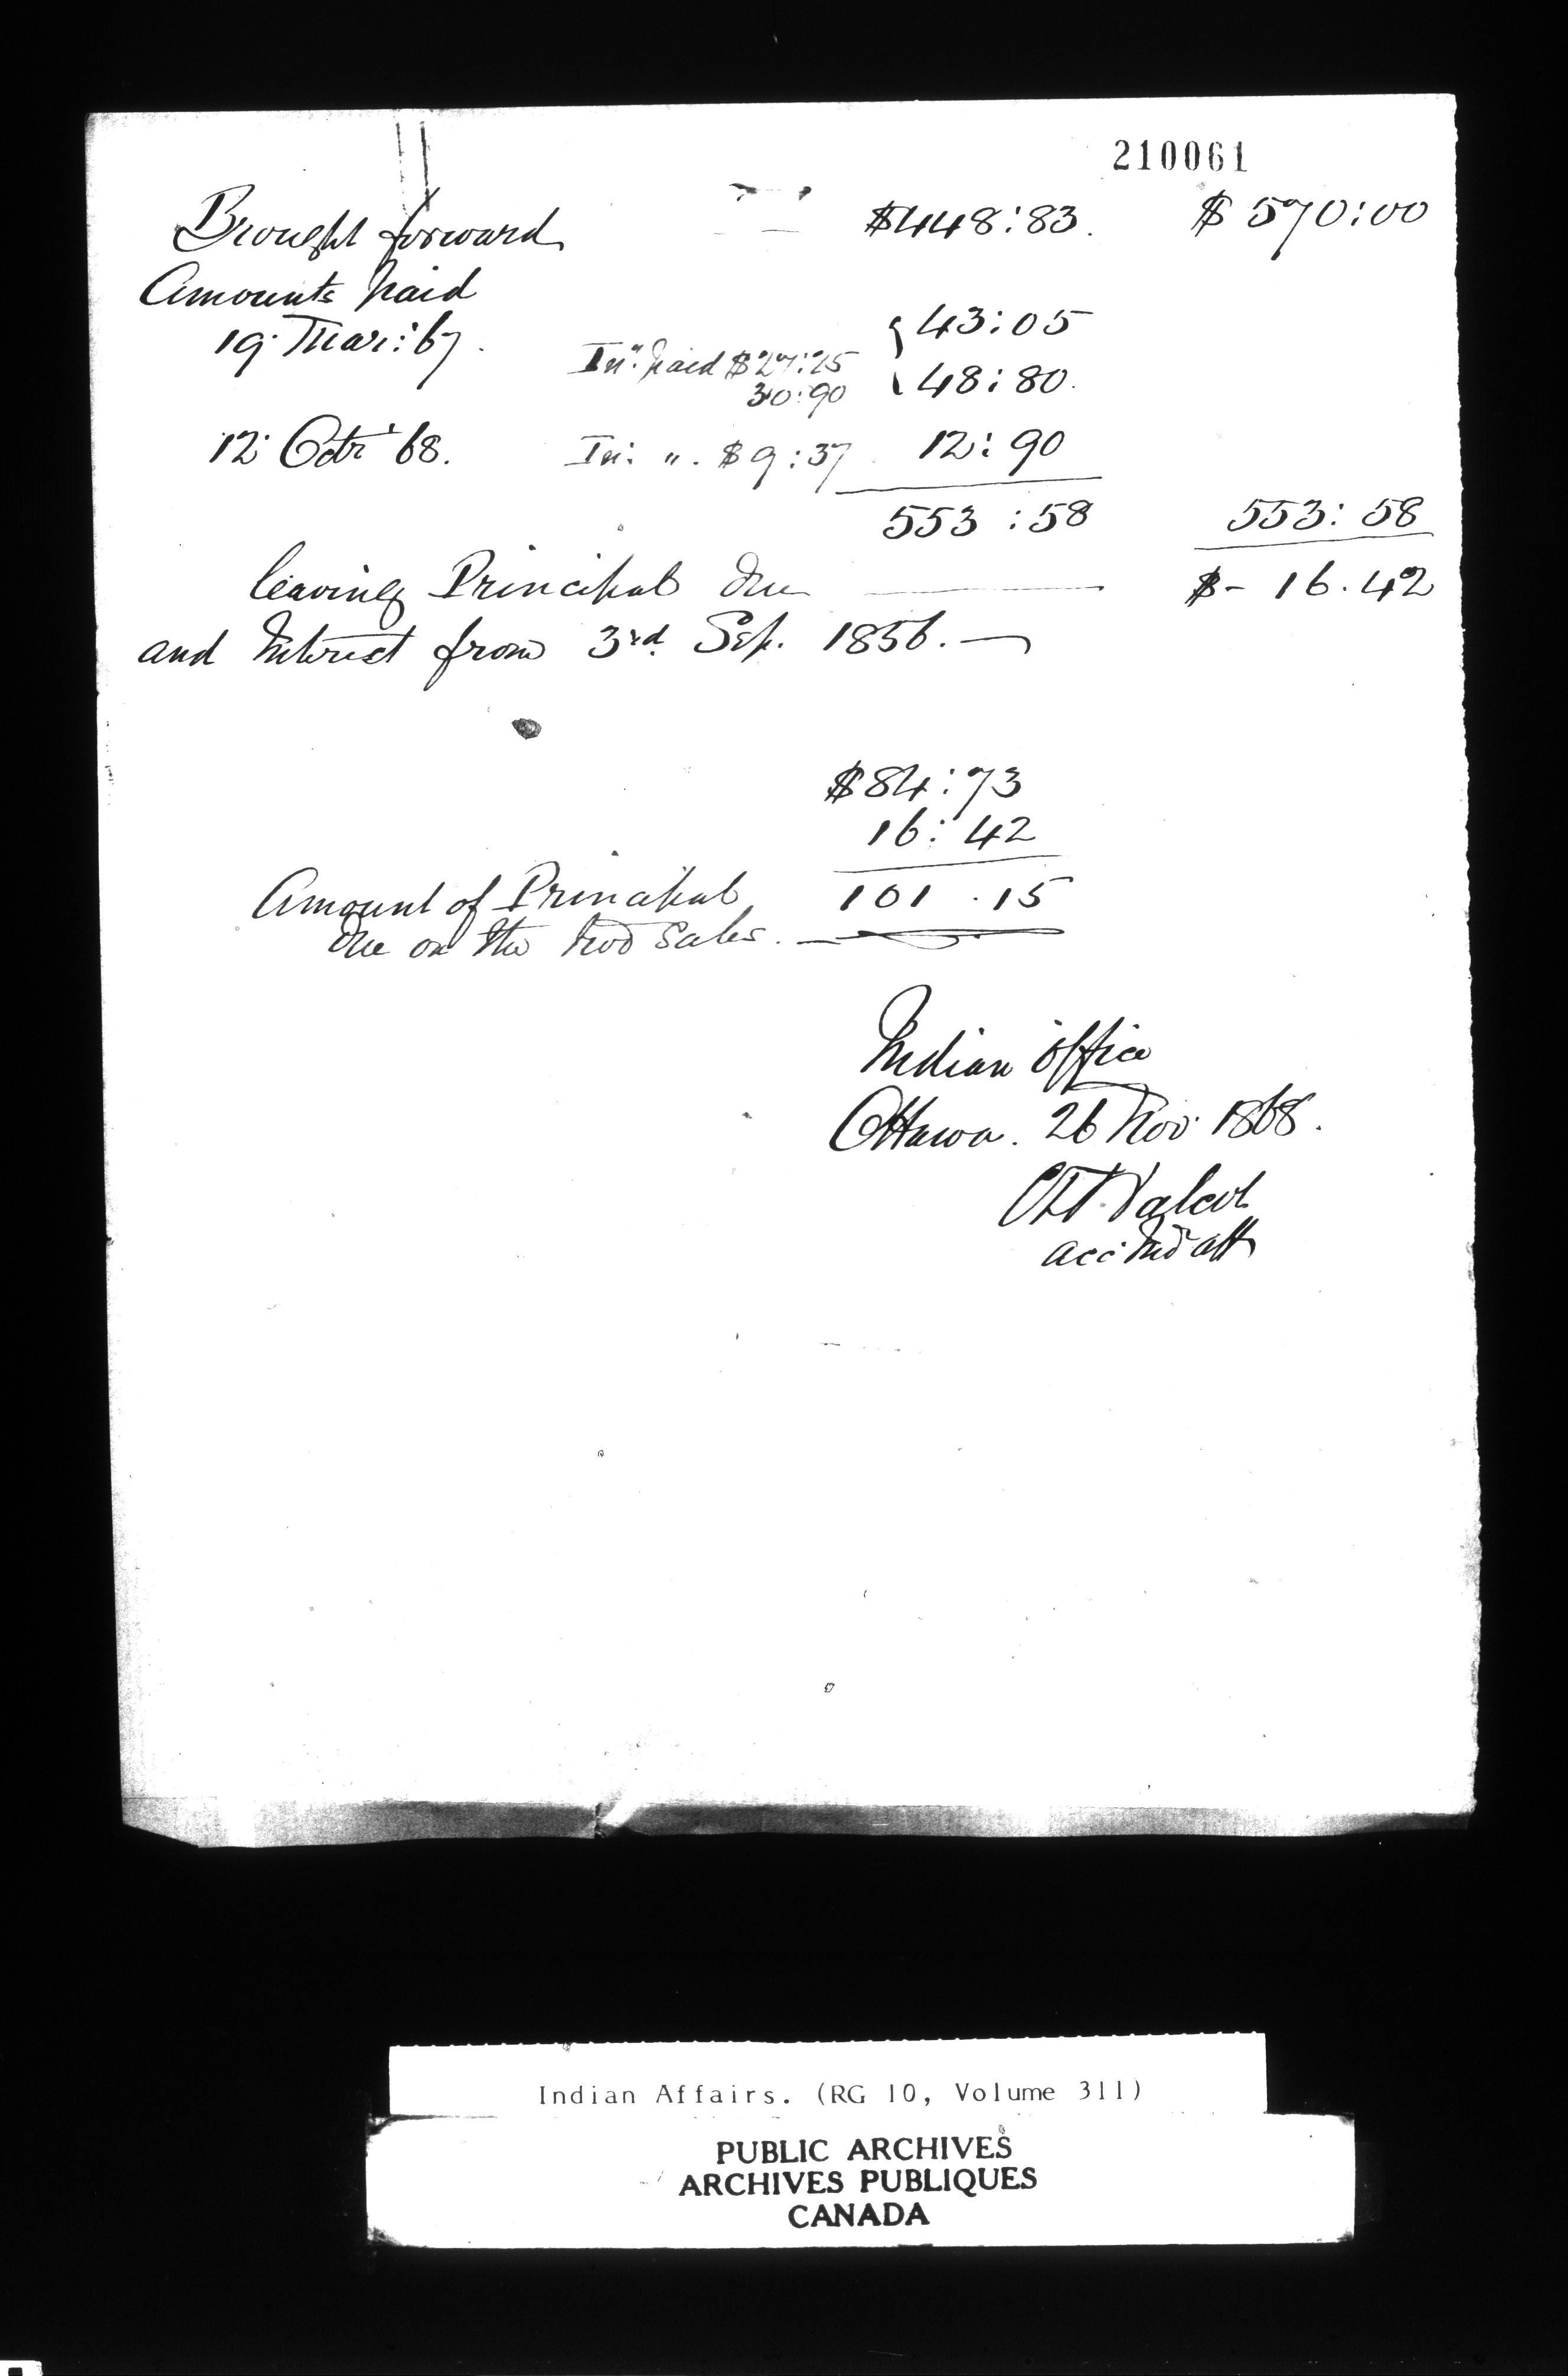 210061
Brought forward $448:83. $570:00
Amounts paid
19 Mar: 67. 43:05
Int. paid $27:25
30:90 48:80.
12 Octr 68. In: ". $9:37 12:90
553:58 553:58
leaving Principal due $- 16.42
and Interest from 3rd. Sep. 1856.
$84:73
16:42
Amount of Principal 101.15
due on the two Sales.
Indian office
Ottawa. 26 Nov 1868.
Acc Ind Aff
Indian Affairs. (RG 10, Volume 311)
PUBLIC ARCHIVES
ARCHIVES PUBLIQUES
CANADA